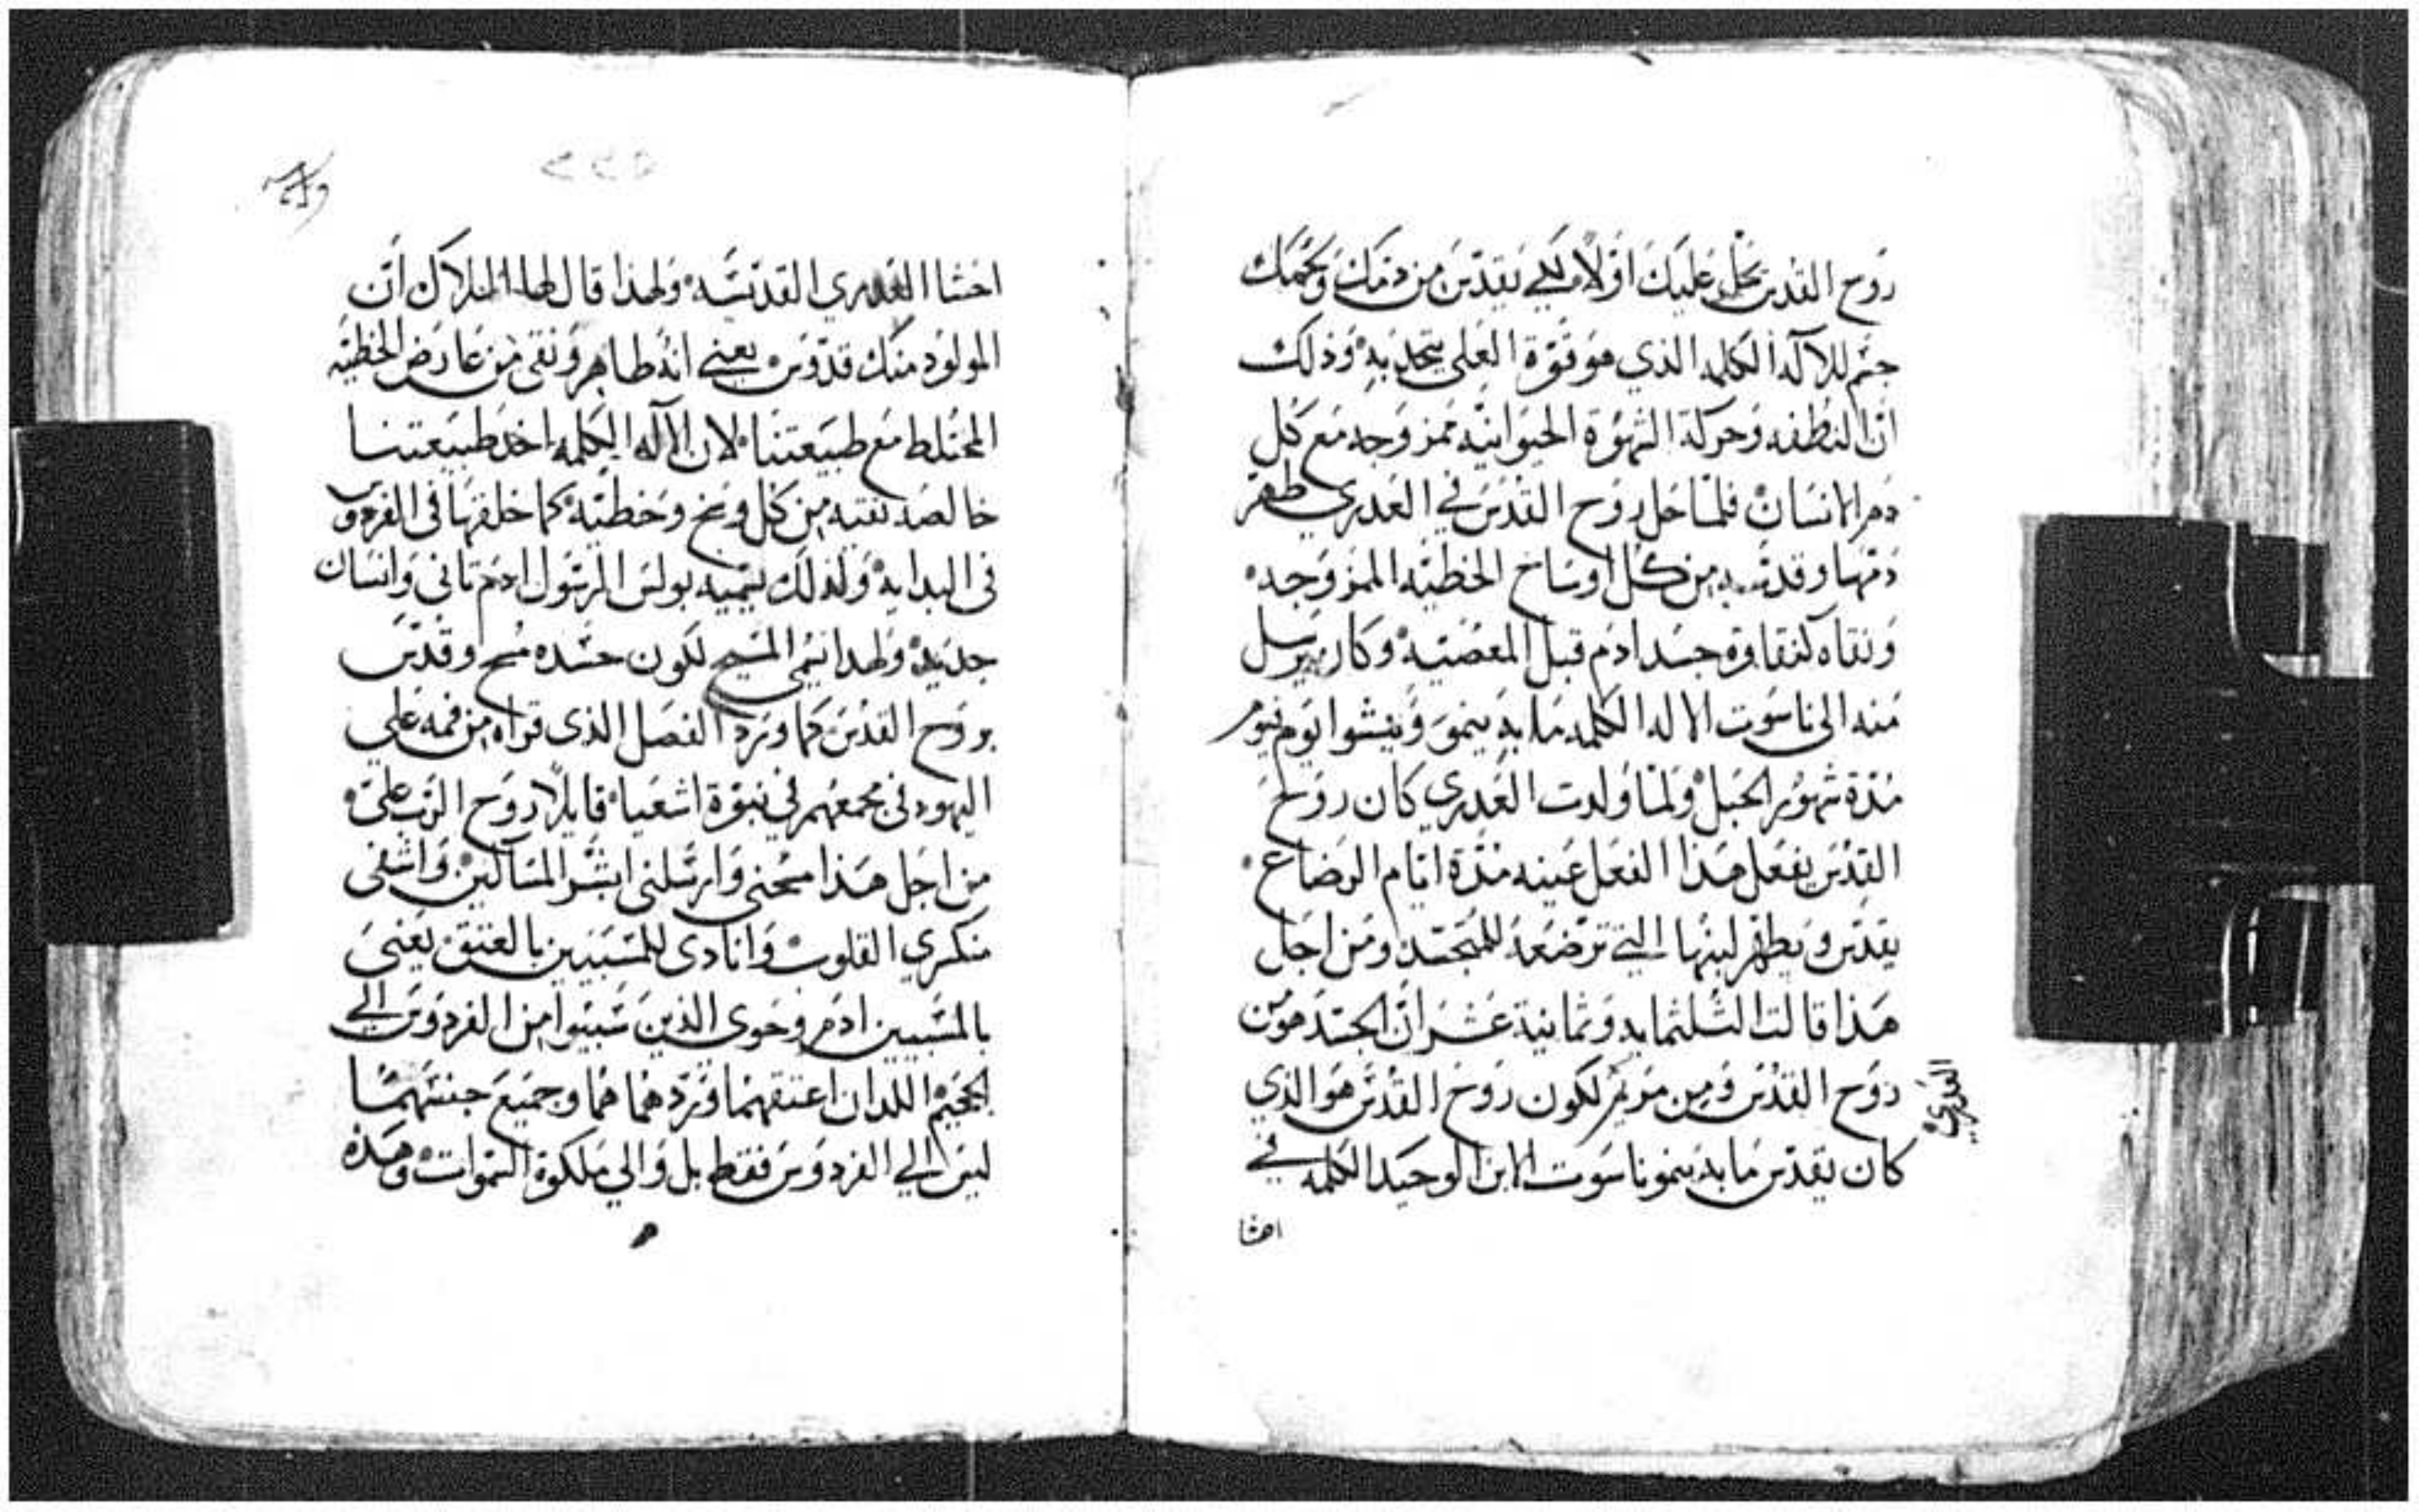 روح القدس يحل عليك اولا لكي يقدس من دمك ولحمك
جسم للاله الكلمه الذي هو قوة العلي يتحد به وذلك
ان النطفه وحركة الشهوة الحيوانيه ممزوجه مع كل
دم الانسان فلما حل روح القدس في العدري طهر
دمها وقدسه من كل اوساخ الخطيه الممزوجه
ونقاه كنقاوة جسد ادم قبل المعصيه وكان يرسل
منه الى ناسوت الاله الكلمه ما به ينمو وينشوا يوم فيوم
مدة شهور الحبل ولما ولدت العدري كان روح
القدس يفعل هذا الفعل عينه مدة ايام الرضاع
يقدس ويطهر لبنها التي ترضعه للمتجسد ومن اجل
هذا قالت الثلثمايه وثمانية عشر ان الجسد هو من
روح القدس ومن مريم لكون روح القدس هو الذي
العدري
كان يقدس ما به ينمو ناسوت الابن الوحيد الكلمه في
احشا
٢٢٥
احشا العدري القديسه ولهذا قال لها الملاك ان
المولود منك قدوس يعني انه طاهر ونقى من عارض الخطيه
المختلط مع طبيعتنا لان الاله الكلمه اخد طبيعتنا
خالصه نقيه من كل وسخ وخطيه كما خلقها في الفردوس
في البدايه ولذلك يسميه بولس الرسول ادم تاني وانسان
جديد ولهدا سمي المسيح لكون جسده مسح وقدس
بروح القدس كما ورد الفصل الذي قراه من فمه على
اليهود في مجمعهم في نبوة اشعيا قايلا روح الرب علي
من اجل هذا مسحني وارسلني ابشر المساكين واشفي
منكسري القلوب وانادى للمسبيين بالعتق يعني
بالمسبيين ادم وحوى الذين سبيوا من الفردوس الي
الجحيم اللدان اعتقهما وردهما هما وجميع جنسهما
ليس الي الفردوس فقط بل والي ملكوة السموات وهذه